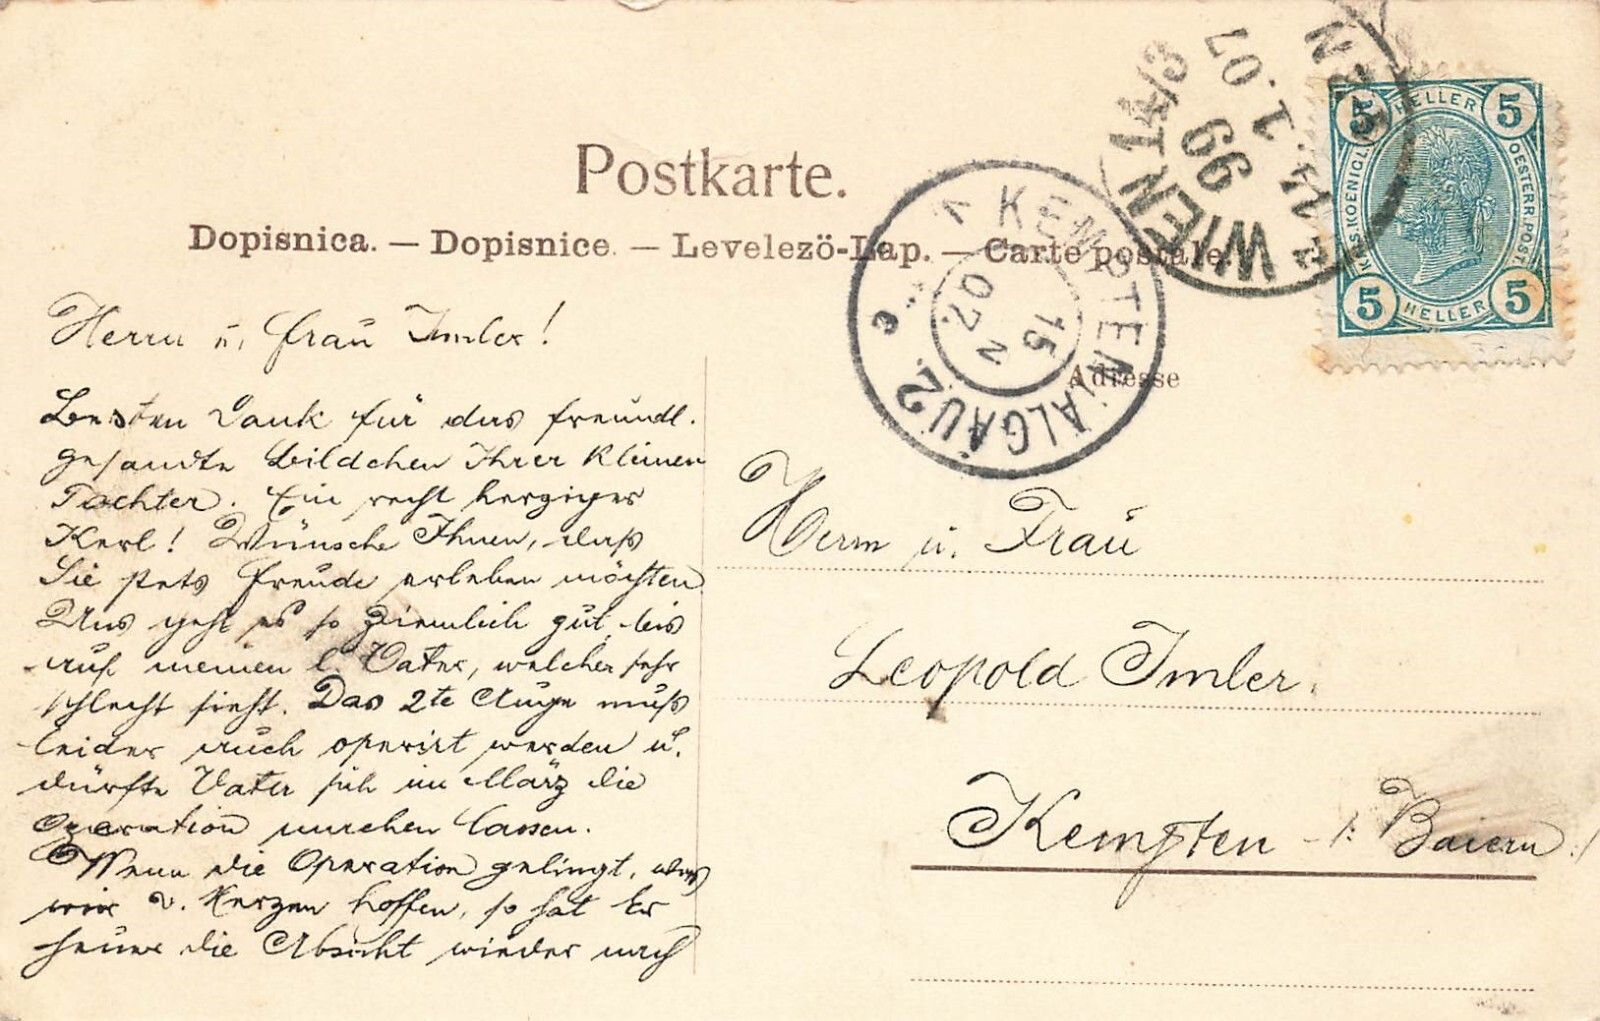 Postkarte.
Dopisnica. — Dopisnice. — Levelezö-Lap. — Carte postale.
WIEN 14/3
99
14.1.07
KEMPTEN / ALGÄU 2
15
2
07
5 HELLER 5
KAIS. KOENIGL.
OESTERR. POST.
5 HELLER 5
Adresse
Herrn u. Frau Imler!
Besten Dank für das freundl.
gesandte Bildchen Ihrer kleinen
Tochter. Ein recht herziges
Kerl! Wünsche Ihnen, daß
Sie stets Freude erleben möchten
Uns geht es so ziemlich gut, bis
auf meinen l. Vater, welcher sehr
schlecht sieht. Das 2te Auge muß
leider auch operirt werden u.
dürfte Vater sich im März die
Operation machen lassen.
Wenn die Operation gelingt, was
wir v. Herzen hoffen, so hat Er
heuer die Absicht wieder nach
Herrn u. Frau
Leopold Imler.
Kempten i. Baiern!